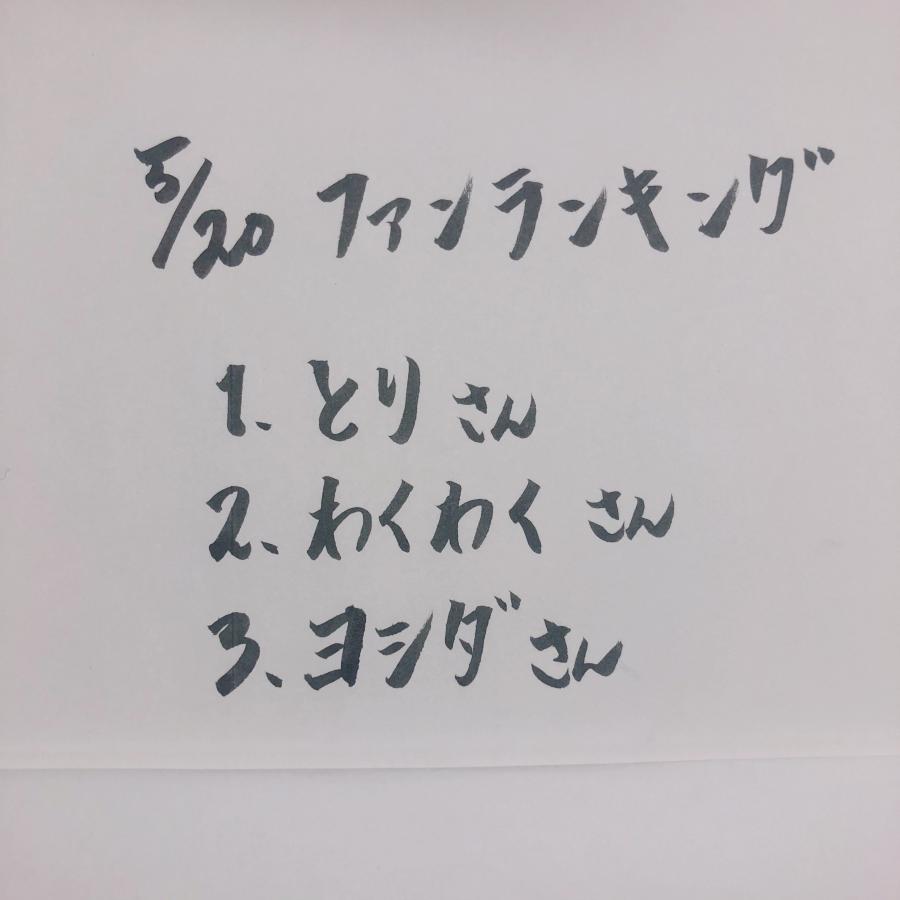 5/20 ファンランキング
1. とりさん
2. わくわくさん
3. ヨシダさん